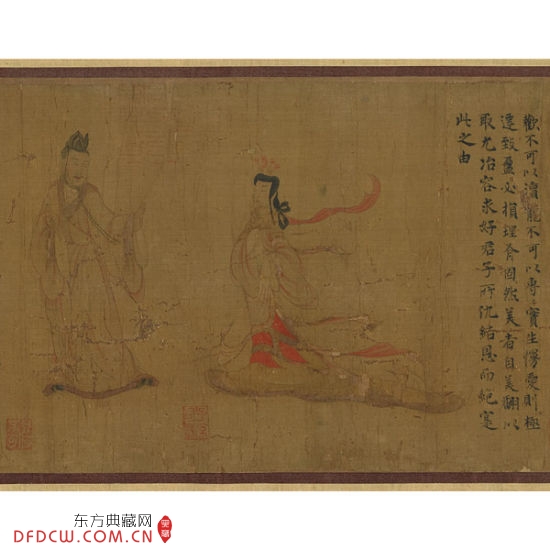 歡不可以瀆寵不可以專〻實生慢愛則極
遷致盈必損理有固然美者自美翩以
取尤冶容求好君子所仇結恩而絕寔
此之由
东方典藏网
DFDCW.COM.CN